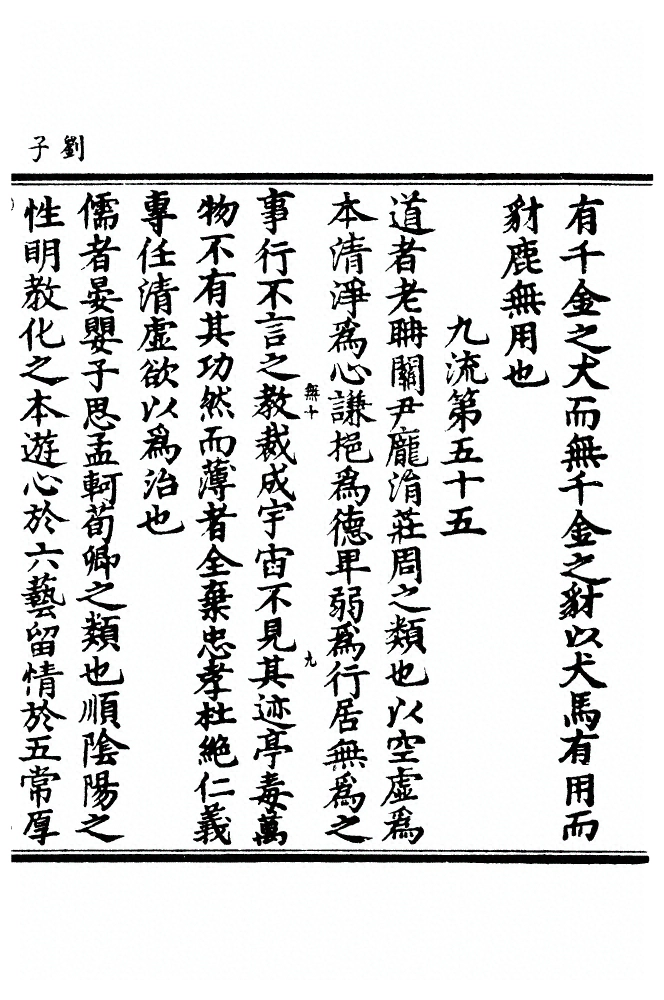 劉子
有千金之犬而無千金之豺以犬馬有用而
豺鹿無用也
九流第五十五
道者老聃關尹龐涓莊周之類也以空虛爲
本清淨爲心謙挹爲德卑弱爲行居無爲之
無十
九
事行不言之教裁成宇宙不見其迹亭毒萬
物不有其功然而薄者全棄忠孝杜絶仁義
專任清虛欲以爲治也
儒者晏嬰子思孟軻荀卿之類也順陰陽之
性明教化之本遊心於六藝留情於五常厚